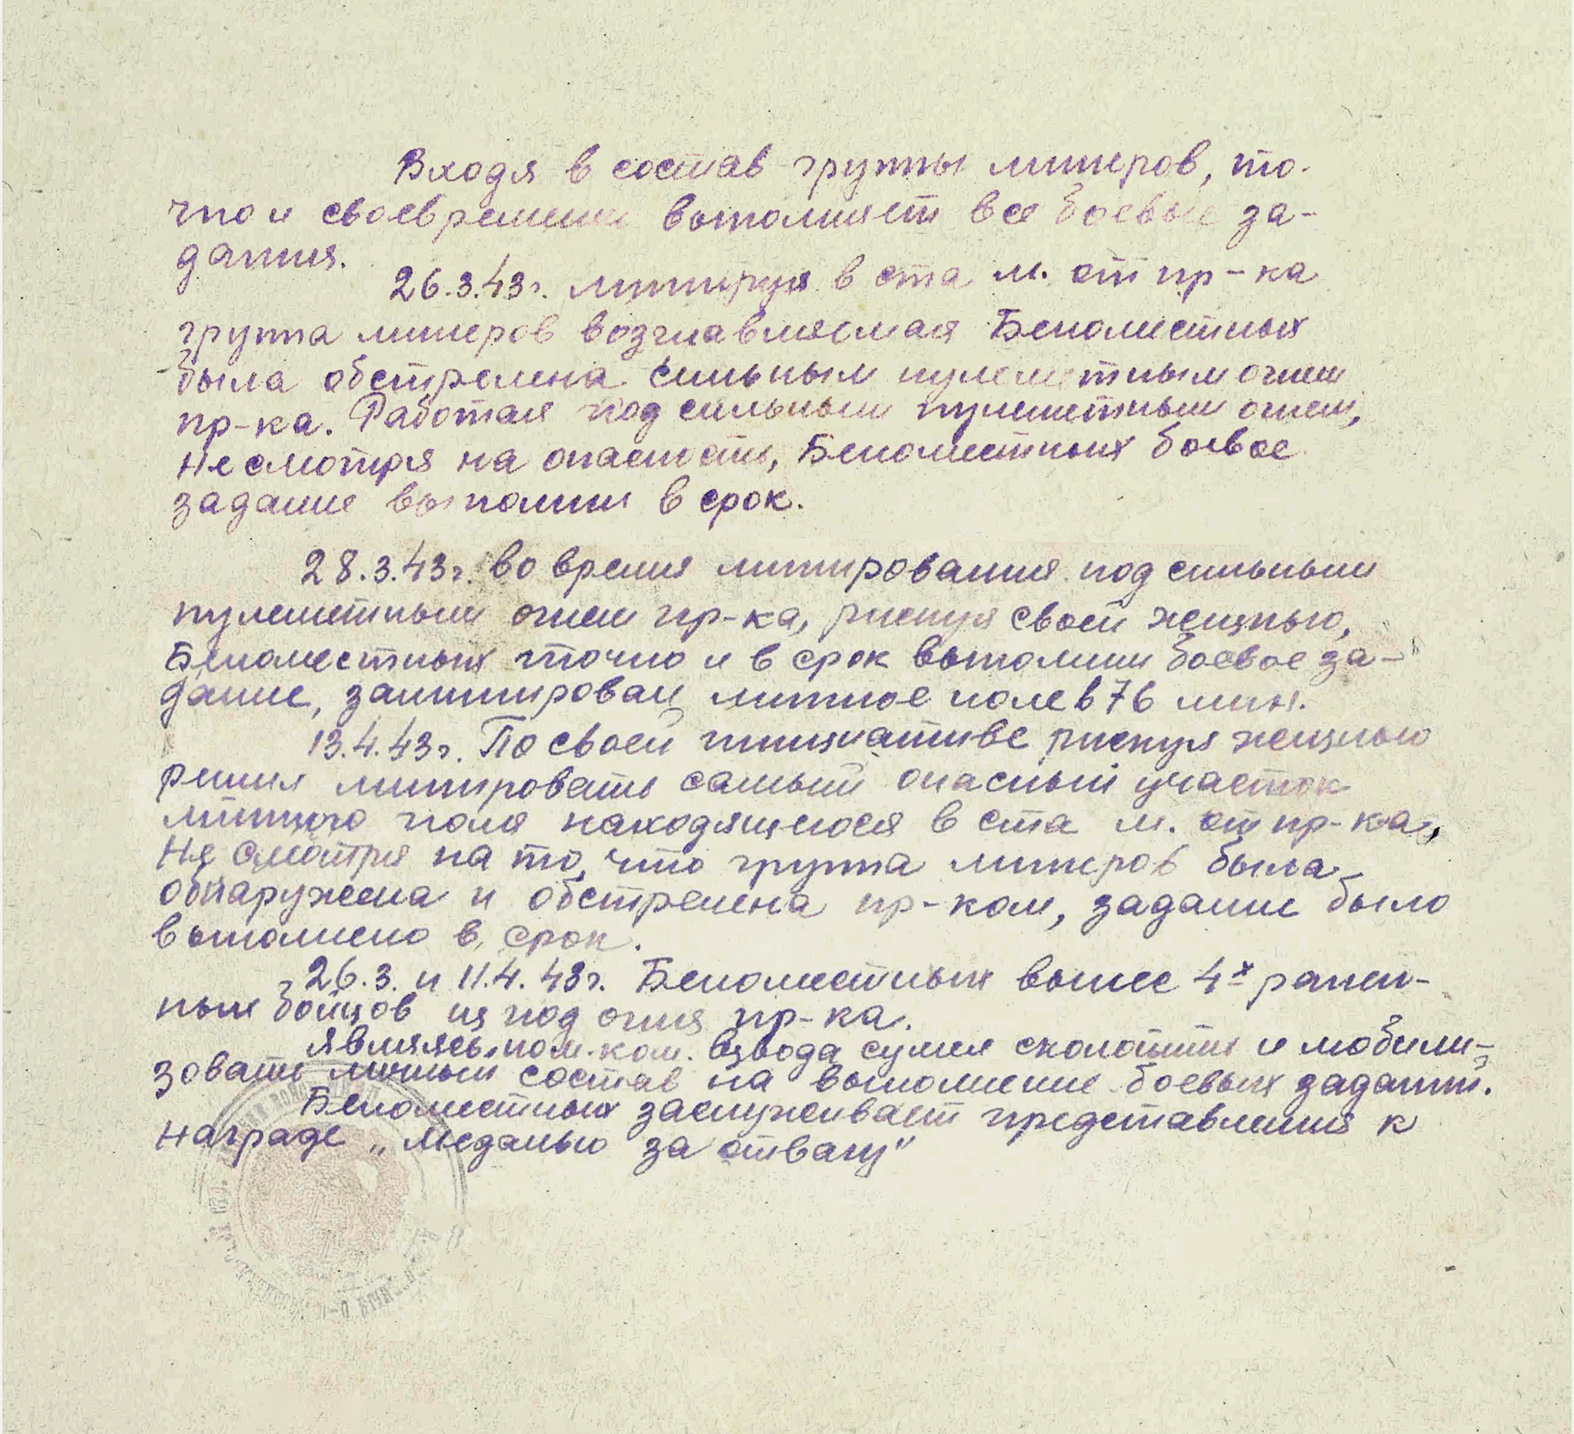 Входя в состав группы минеров, то-
чно и своевременно выполняет все боевые за-
дания.
26.3.43г. минируя в ста м. от пр-ка
группа минеров возглавляемая Беломестных
была обстрелена сильным пулеметным огнем
пр-ка. Работая под сильным пулеметным огнем,
не смотря на опасность, Беломестных боевое
задание выполнил в срок.
28.3.43г. во время минирования под сильным
пулеметным огнем пр-ка, рискуя своей жизнью,
Беломестных точно и в срок выполнил боевое за-
дание, заминировал минное поле в 76 мин.
13.4.43г. По своей инициативе рискуя жизнью
решил минировать самый опасный участок
минного поля находящегося в ста м. от пр-ка,
Не смотря на то, что группа минеров была
обнаружена и обстрелена пр-ком, задание было
выполнено в срок.
26.3. и 11.4.43г. Беломестных вынес 4х ранен-
ных бойцов из под огня пр-ка.
Являясь пом. ком. взвода сумел сколотить и мобили-
зовать личный состав на выполнение боевых заданий.
Беломестных заслуживает представления к
награде „медалью за отвагу"